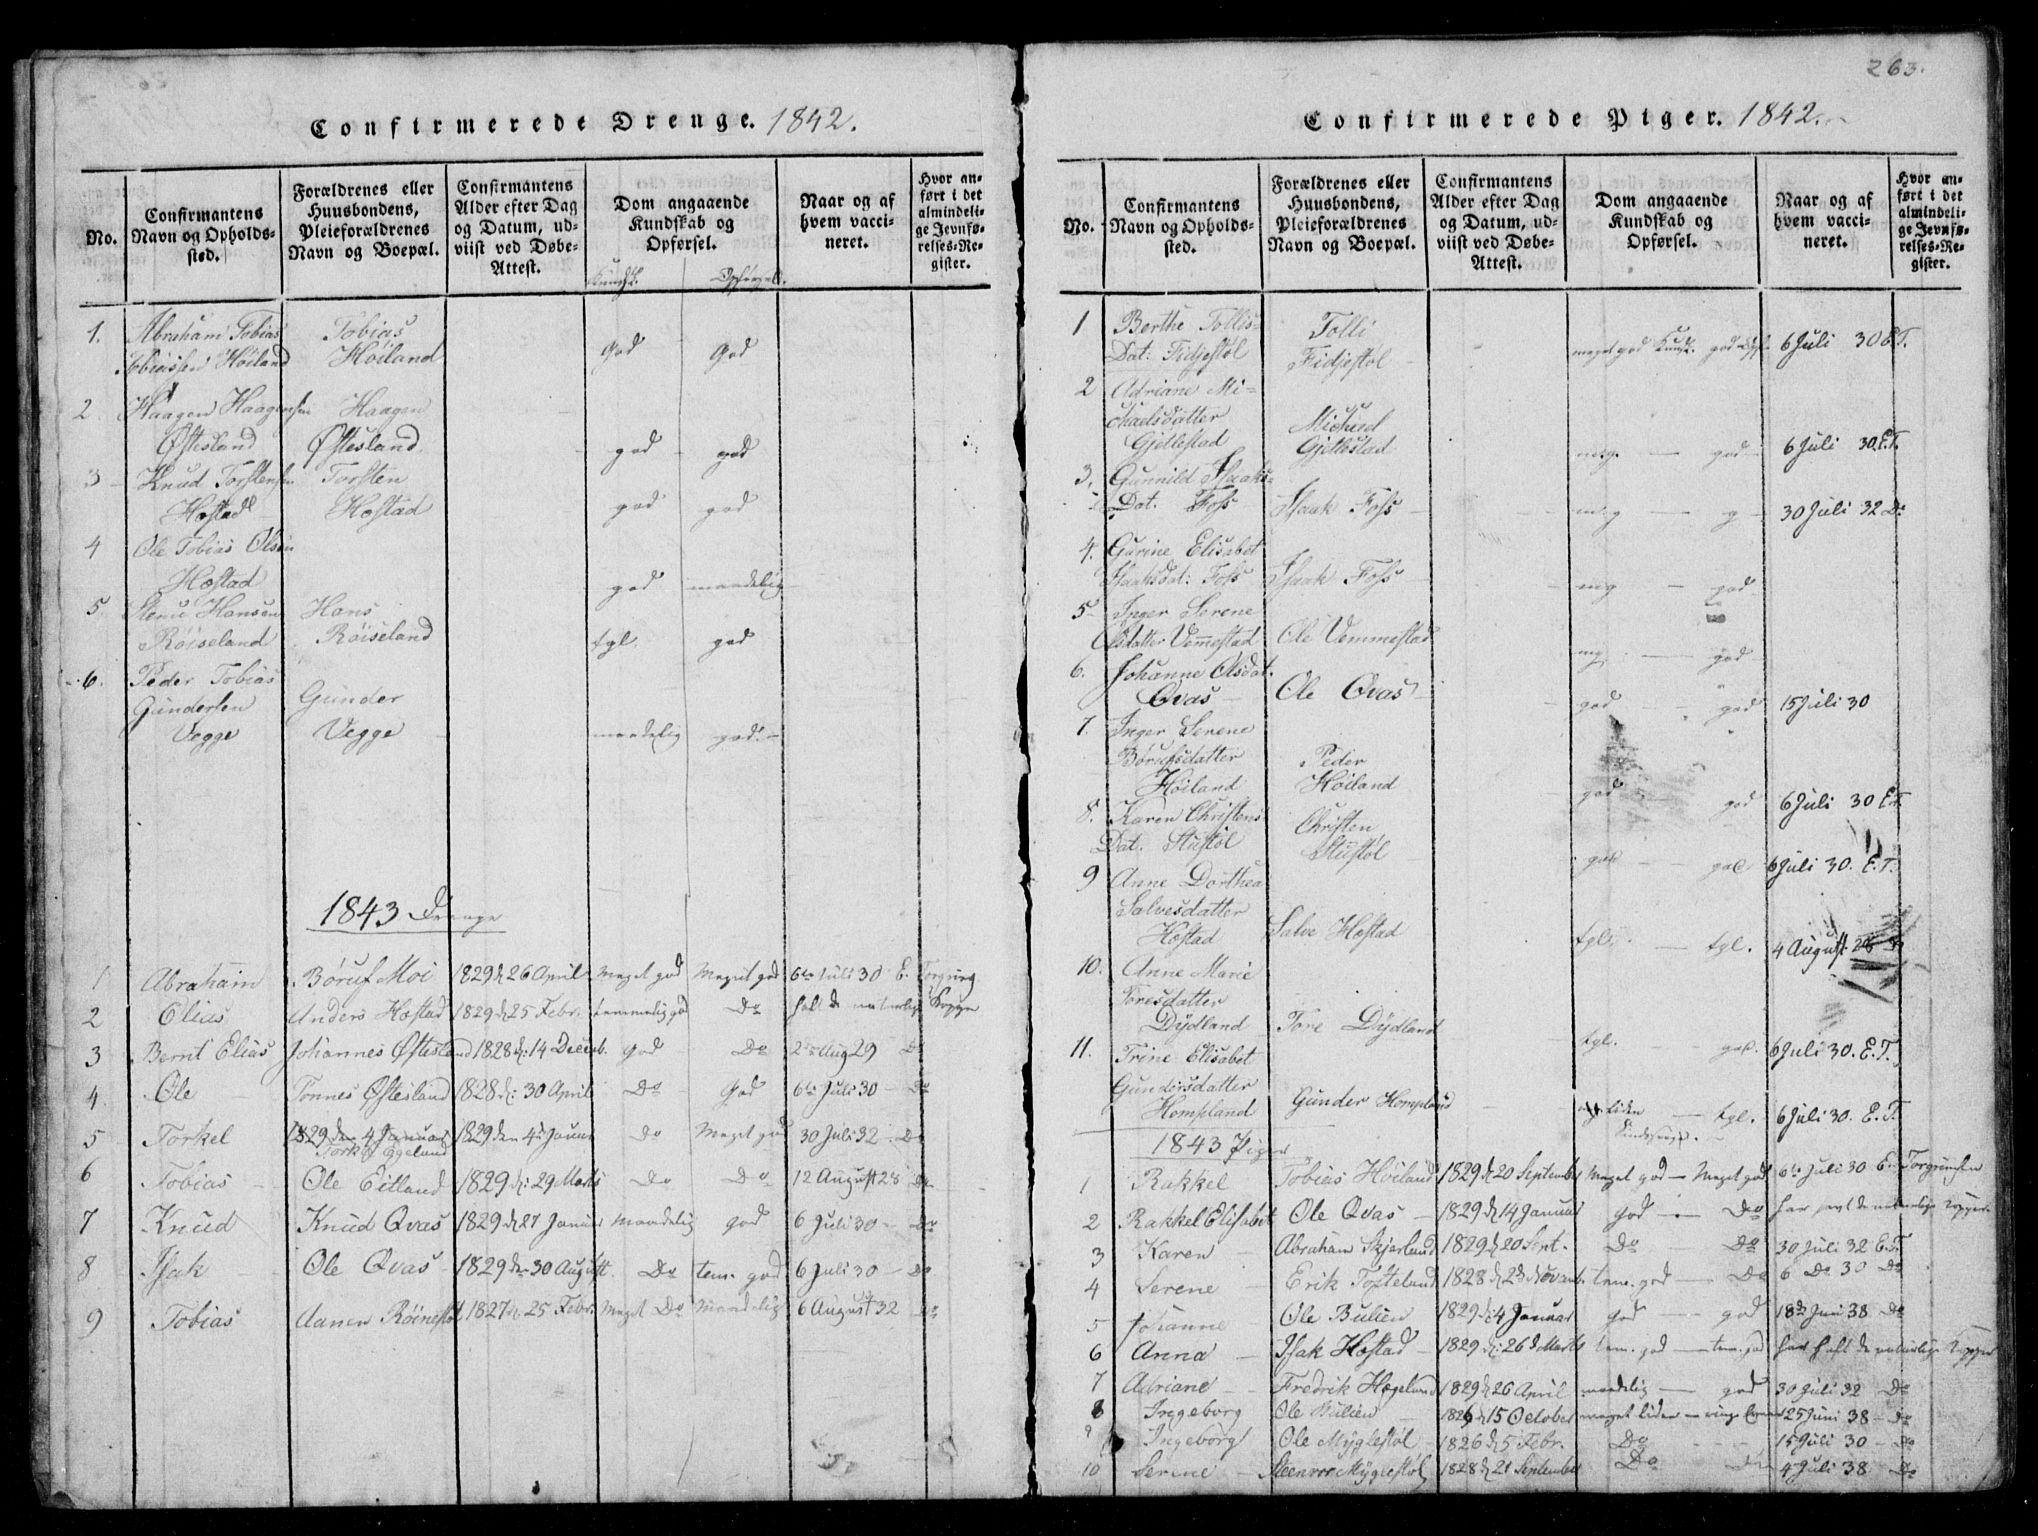 Confirmerede Drenge. 1842.
No.
Confirmantens Navn og Opholds-sted.
Forældrenes eller Huusbondens, Pleieforældrenes Navn og Boepæl.
Confirmantens Alder efter Dag og Datum, ud-viist ved Døbe-Attest.
Dom angaaende Kundskab og Opførsel.
Naar og af hvem vacci-neret.
Hvor an-ført i det almindeli-ge Jevnfø-relses-Re-gister.
Kundsk. Opførsel.
1. Abraham Tobias Tobias
Tobiassen Høiland Høiland God God
2. Haagen Haagensen Haagen
Øftesland Øftesland god god
3 Knud Torstensen Torsten
Hostad Hostad god god
4 Ole Tobias Olsen
Hostad god maadelig
5 Stenie Hansen Hans
Røiseland Røiseland tgl. god
6. Peder Tobias
Gundersen Gunder
Vegge Vegge maadelig god.
1843 Drenge
1 Abraham Børuf Moi 1829 d 26 April Meget god Meget god 6te Juli 30 E. Torgrims
2 Elias Anders Hostad 1829 d 25 Febr. temmelig god Do havt de naturlige Kopper
3 Bernt Elias Johannes Øftesland 1828 d: 14 Decemb. god Do 2 Aug 29 Do
4 Ole Tønnes Øftesland 1828 d: 30 April Do God 6te Juli 30 Do
5 Torkel 1829 den 4 Januar 1829 den 4de Januar Do Meget god 30 Juli 32 Do
Torkel Eggeland
6 Tobias Ole Eitland 1829 d: 29 Marts Do Do 12 August 28 Do
7 Knud Knud Qvas 1829 d 27 Januar maadelig god 6 Juli 30 Do
8 Isak Ole Qvas 1829 den 30 August Do tem. god 6 Juli 30 Do
9 Tobias Aanen Røinestøl 1827 d. 25 Febr. Meget Do Maadelig 6 August 32 Do
263.
Confirmerede Piger. 1842.
No.
Confirmantens Navn og Opholds-sted.
Forældrenes eller Huusbondens, Pleieforældrenes Navn og Boepæl.
Confirmantens Alder efter Dag og Datum, ud-viist ved Døbe-Attest.
Dom angaaende Kundskab og Opførsel.
Naar og af hvem vacci-neret.
Hvor an-ført i det almindeli-ge Jevnfø-relses-Re-gister.
1 Berthe Tollis- Tolli
Dat: Fidjestøl Fidjestøl meget god Kundsk. god Opf. 6 Juli 30 E.T.
2 Adriane Mi-
chaelsdatter Michael
Gjetlestad Gjetlestad meg. god 6 Juli 30 E.T.
3. Gunnild Isaaks-
Dat. Foss Isaak Foss m.g g 30 Juli 32 Do
4. Gurine Elisabet
Isaaksdat: Foss Isaak Foss mg god
5 Inger Serene
Olsdatter Vemmestad Ole Vemmestad mg god
6. Johanne Olsdat.
Qvas Ole Qvas god god 15 Juli 30
7. Inger Serene
Børufsdatter Peder
Høiland Høiland god god 6 Juli 30 E.T.
8. Karen Christens Christen
Dat. Stustøl Stustøl god god 6 Juli 30. E.T.
9 Anne Dorthea
Salvesdatter
Hostad Salve Hostad tgl. tgl. 4 August 28
10. Anne Marie
Toresdatter
Dydland Tore Dydland tgl. god. 6 Juli 30. E.T.
11. Trine Elisabet
Gundersdatter
Hompland Gunder Hompland liden tgl. 6 Juli 30. E.T.
1843 Piger
1 Rakkel Tobias Høiland 1829 d 20 September Meget god Meget god 6te Juli 30 E. Torgrimsen
2 Rakkel Elisabet Ole Qvas 1829 d 14 Januar god Do har havt de naturlige Kopper
3 Karen Abraham Skjerland 1829 d 20 Sept. Do Do 30 Juli 32 E.T.
4 Serene Erik Tofteland 1828 d 23 Novemb. tem. god Do 6 Do 30 Do
5 Johanne Ole Bulien 1829 d: 4 Januar god god 18de Juni 38 Do
6 Anna Isak Hostad 1829 d: 26 Marts tem. god tem. god har haft de naturlige Kopper
7 Adriane Fredrik Hægeland 1829 d 26 April maadelig god 30 Juli 32 Do
8 Ingeborg Ole Bulien 1826 d 15 October meget liden 25 Juni 38 Do
9 Ingeborg Ole Myglestøl 1826 d 5 Febr. Do 15 Juli 30 Do
10 Serene Steenvor Myglestøl 1828 d 21 September Do Do 4 Juli 38 Do